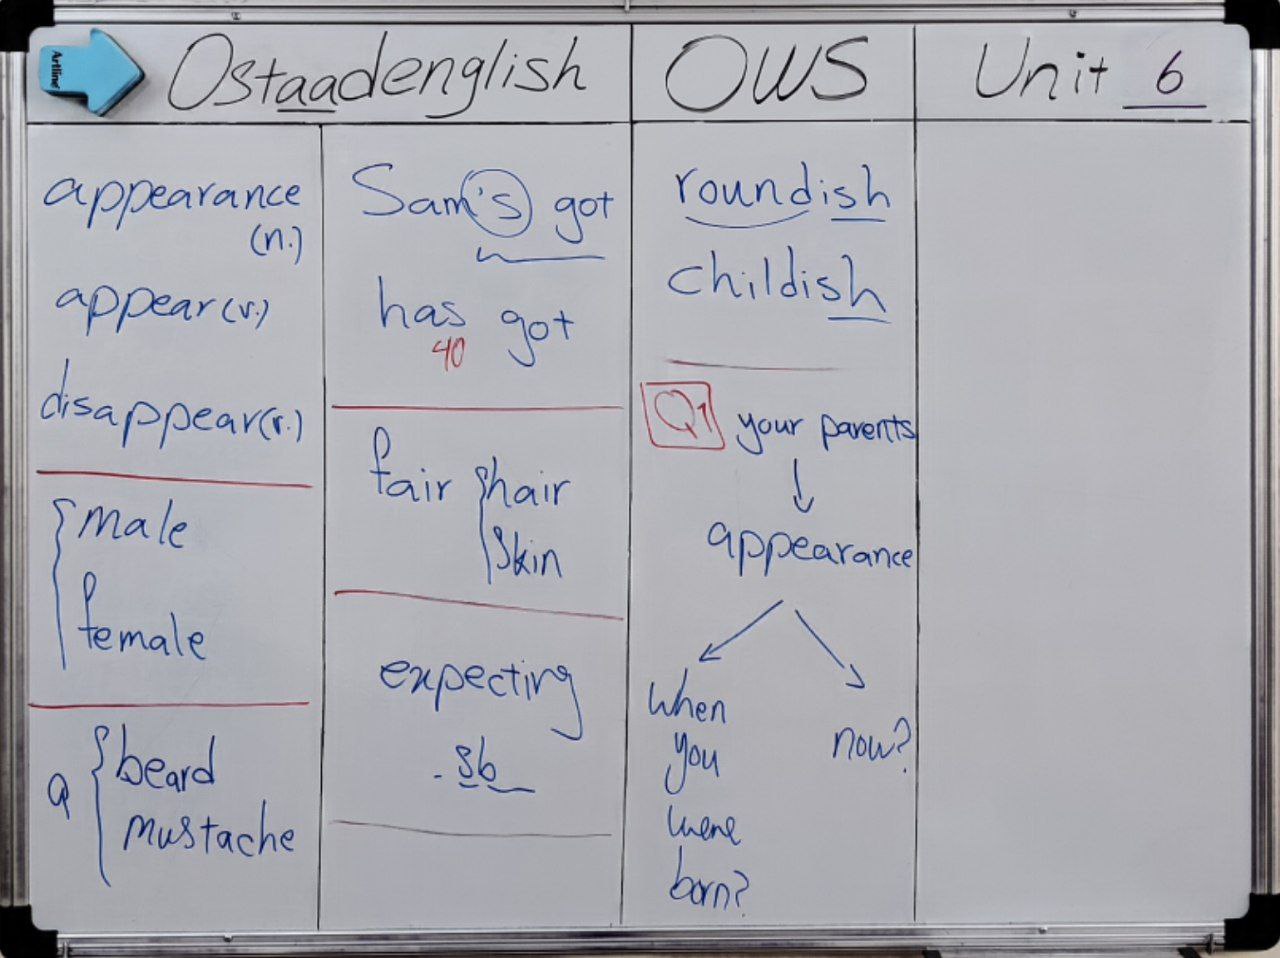 Artline
Ostaadenglish
OWS
Unit 6
appearance
(n.)
appear (v.)
disappear (v.)
male
female
a
beard
mustache
Sam's got
has got
40
fair
hair
skin
expecting
sb
roundish
childish
Q1
your parents
appearance
when
you
were
born?
now?